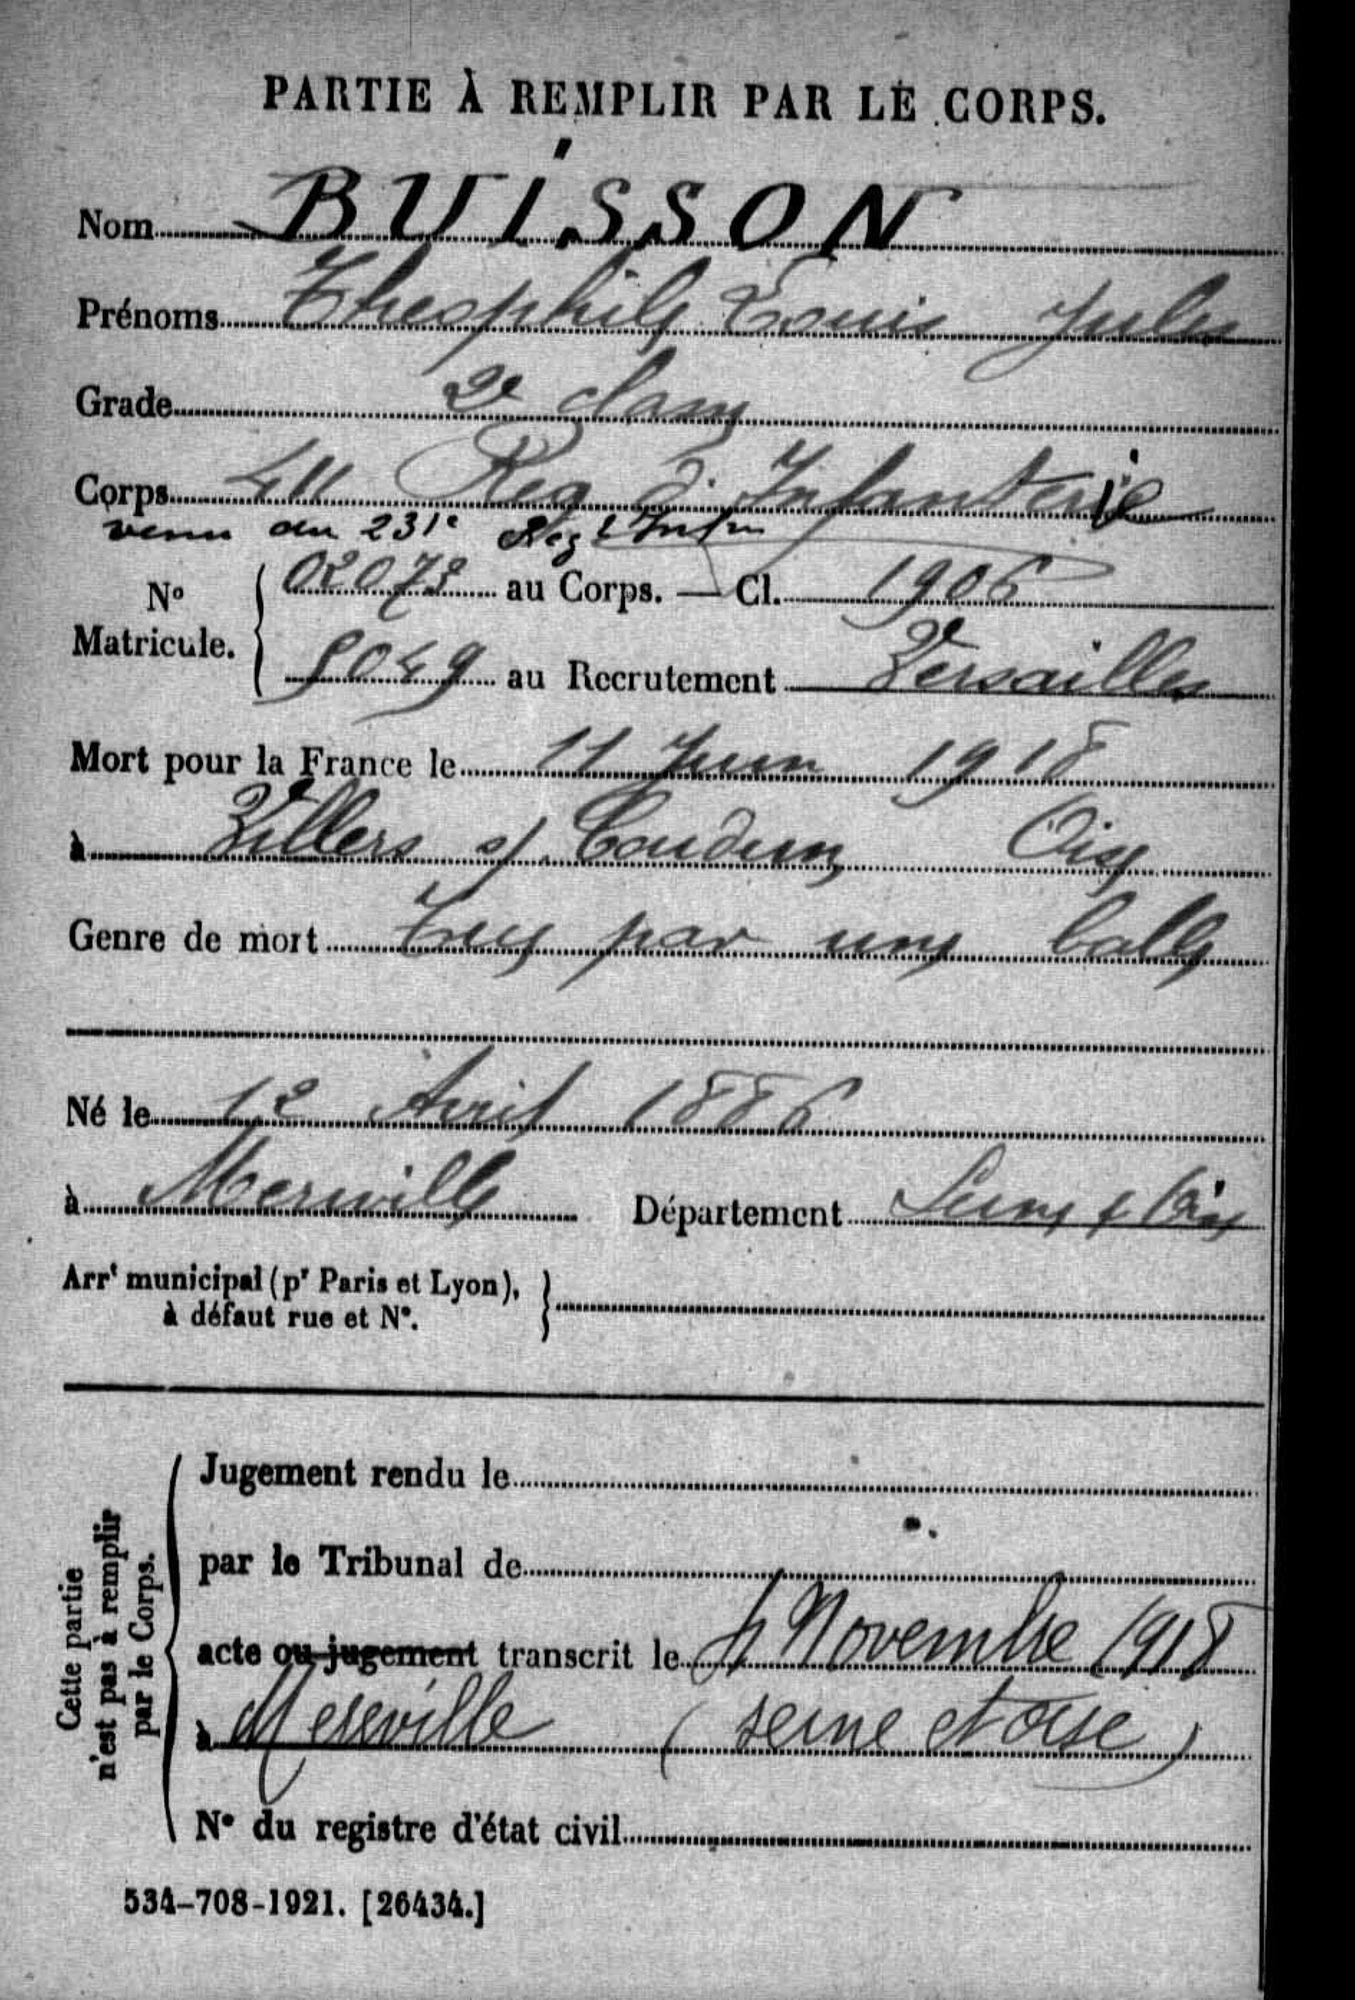 PARTIE À REMPLIR PAR LE CORPS.
Nom BUISSON
Prénoms Theophile Louis Jules
Grade 2e classe
Corps 411 Reg d'Infanterie
venu du 231e Reg d'Infie
N° Matricule. 02073 au Corps. — Cl. 1906
5049 au Recrutement Versailles
Mort pour la France le 11 Juin 1918
à Villers s/ Coudun Oise
Genre de mort Tué par une balle
Né le 12 Avril 1886
à Merville Département Seine & Oise
Arrt municipal (pr Paris et Lyon),
à défaut rue et N°.
Cette partie
n'est pas à remplir
par le Corps.
Jugement rendu le
par le Tribunal de
acte ou jugement transcrit le 4 Novembre 1918
à Mereville (seine et oise)
N° du registre d'état civil
534-708-1921. [26434.]